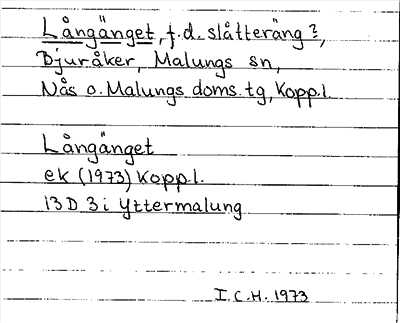 Långänget, f.d. slåtteräng?,
Djuråker, Malungs sn,
Nås o. Malungs doms. tg, Kopp.l.
Långänget
ek (1973) Kopp.l.
13 D 3 i Yttermalung
I.C.H. 1973